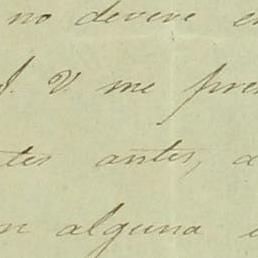 no devere
V me pre
antes, a
n alguna